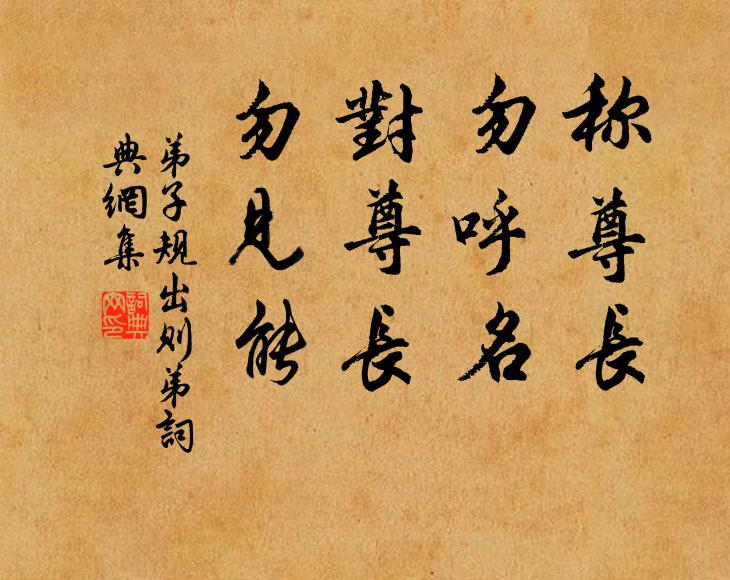 称尊長
勿呼名
對尊長
勿見能
弟子規出则弟詞
典網集
詞典
网印